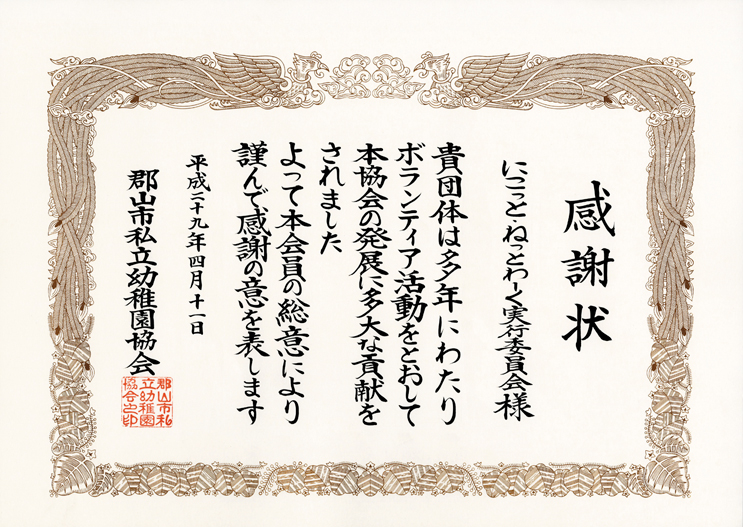 感謝状
にこっと・ねっとわーく実行委員会様
貴団体は多年にわたり
ボランティア活動をとおして
本協会の発展に多大な貢献を
されました
よって本会員の総意により
謹んで感謝の意を表します
平成二十九年四月十一日
郡山市私立幼稚園協会
郡山市私
立幼稚園
協会之印